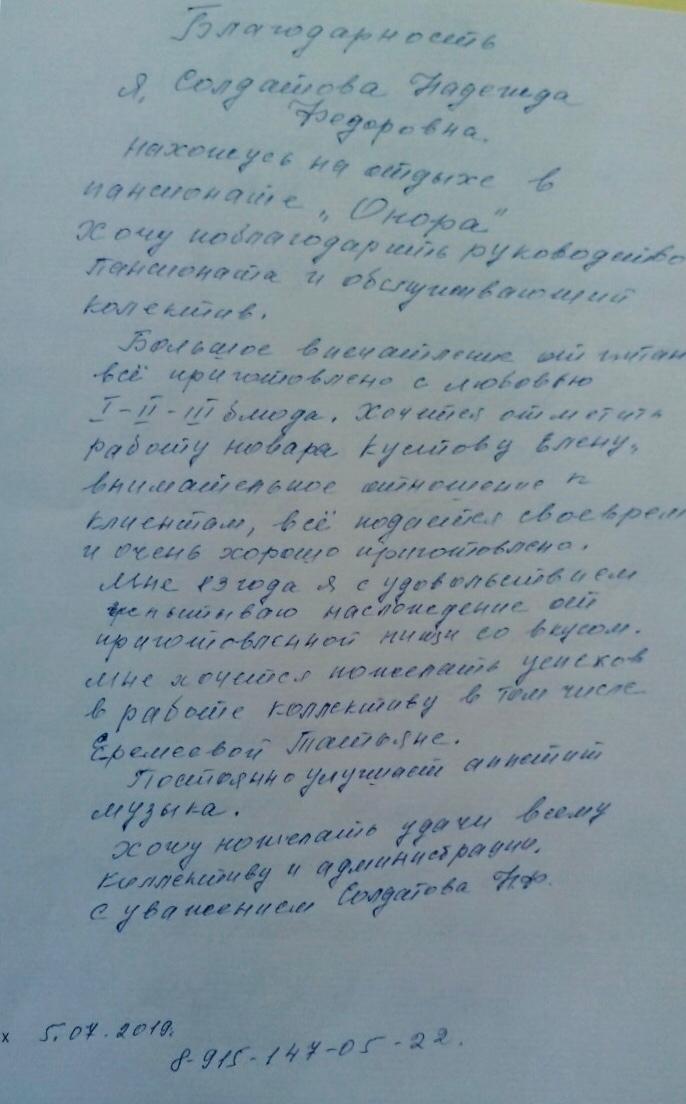 Благодарность
Я, Солдатова Надежда
Федоровна.
нахожусь на отдыхе в
пансионате "Онора"
Хочу поблагодарить руководство
пансионата и обслуживающий
колектив.
Большое впечатление от питан
всё приготовлено с любовью
I-II-III блюда. Хочится отметить
работу повара Кустову Елену,
внимательное отношение к
клиентам, всё подаётся своеврем
и очень хорошо приготовлено.
Мне 83 года я с удовольствием
испытываю наслождение от
приготовленной пищи со вкусом.
Мне хочется пожелать успехов
в работе коллективу в том числе
Еремеевой Татьяне.
Постоянно улучшает аппетит
музыка.
Хочу пожелать удачи всему
коллективу и администрации.
С уважением Солдатова Н.Ф.
х 5.07.2019.
8-915-147-05-22.